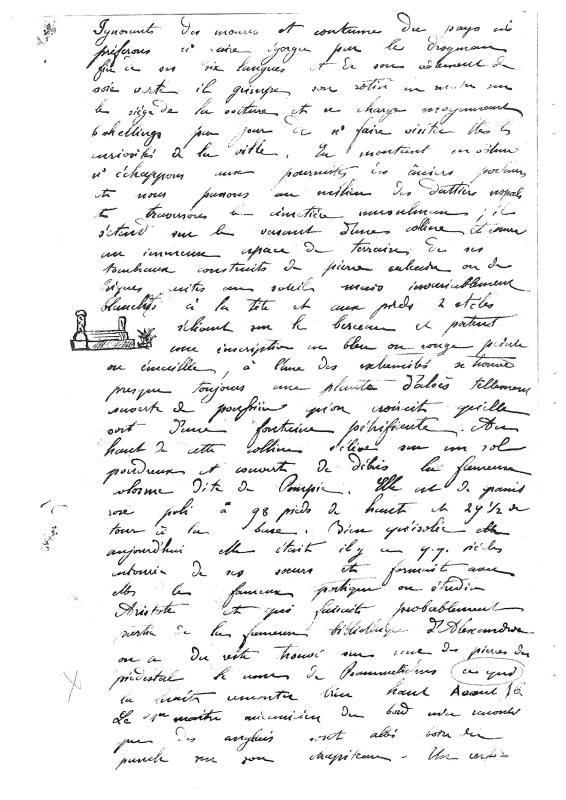 Ignorants des mœurs et coutumes du pays
préférons n' égorger par le drogman
fier de ses six langues et de son vêtement de
soie verte il grimpe son rotin en main sur
le siège de la voiture et se charge moyennant
6 shellings par jour de n' faire visiter ttes les
curiosités de la ville. En montant en voiture
n' échappons aux poursuites des âniers
et nous passons au milieu des dattiers nopals
et traversons un cimetière musulman ; il
s'étend sur le versant d'une colline et couvre
un immense espace de terrain de ses
tombeaux construits de pierre calcaire ou de
briques cuites au soleil mais invariablement
blanchis à la tête et aux pieds 2 stèles
s'élèvent sur le berceau et portent
une inscription en bleu ou rouge peinte
ou émaillée, à l'une des extrémités se trouve
presque toujours une plante d'aloès tellement
couverte de poussière qu'on croirait qu'elle
sort d'une fontaine pétrifiante. Au
haut de cette colline s'élève sur un sol
poudreux et couvert de débris la fameuse
colonne dite de Pompée. Elle est de granit
rose poli à 98 pieds de haut et 29 1/2 de
tour à la base. Bien qu'isolée
aujourd'hui elle était il y a q.q. siècles
entourée de ses sœurs et formait avec
elles le fameux portique où étudia
Aristote et qui faisait probablement
partie de la fameuse bibliothèque d'Alexandrie
on a du reste trouvé sur une des pierres du
piédestal le nom de Psammetichus ce qui
la ferait remonter bien haut
Le 1er maître mécanicien du bord m'a raconté
que des anglais sont allés boire du
punch sur son chapiteau. Un